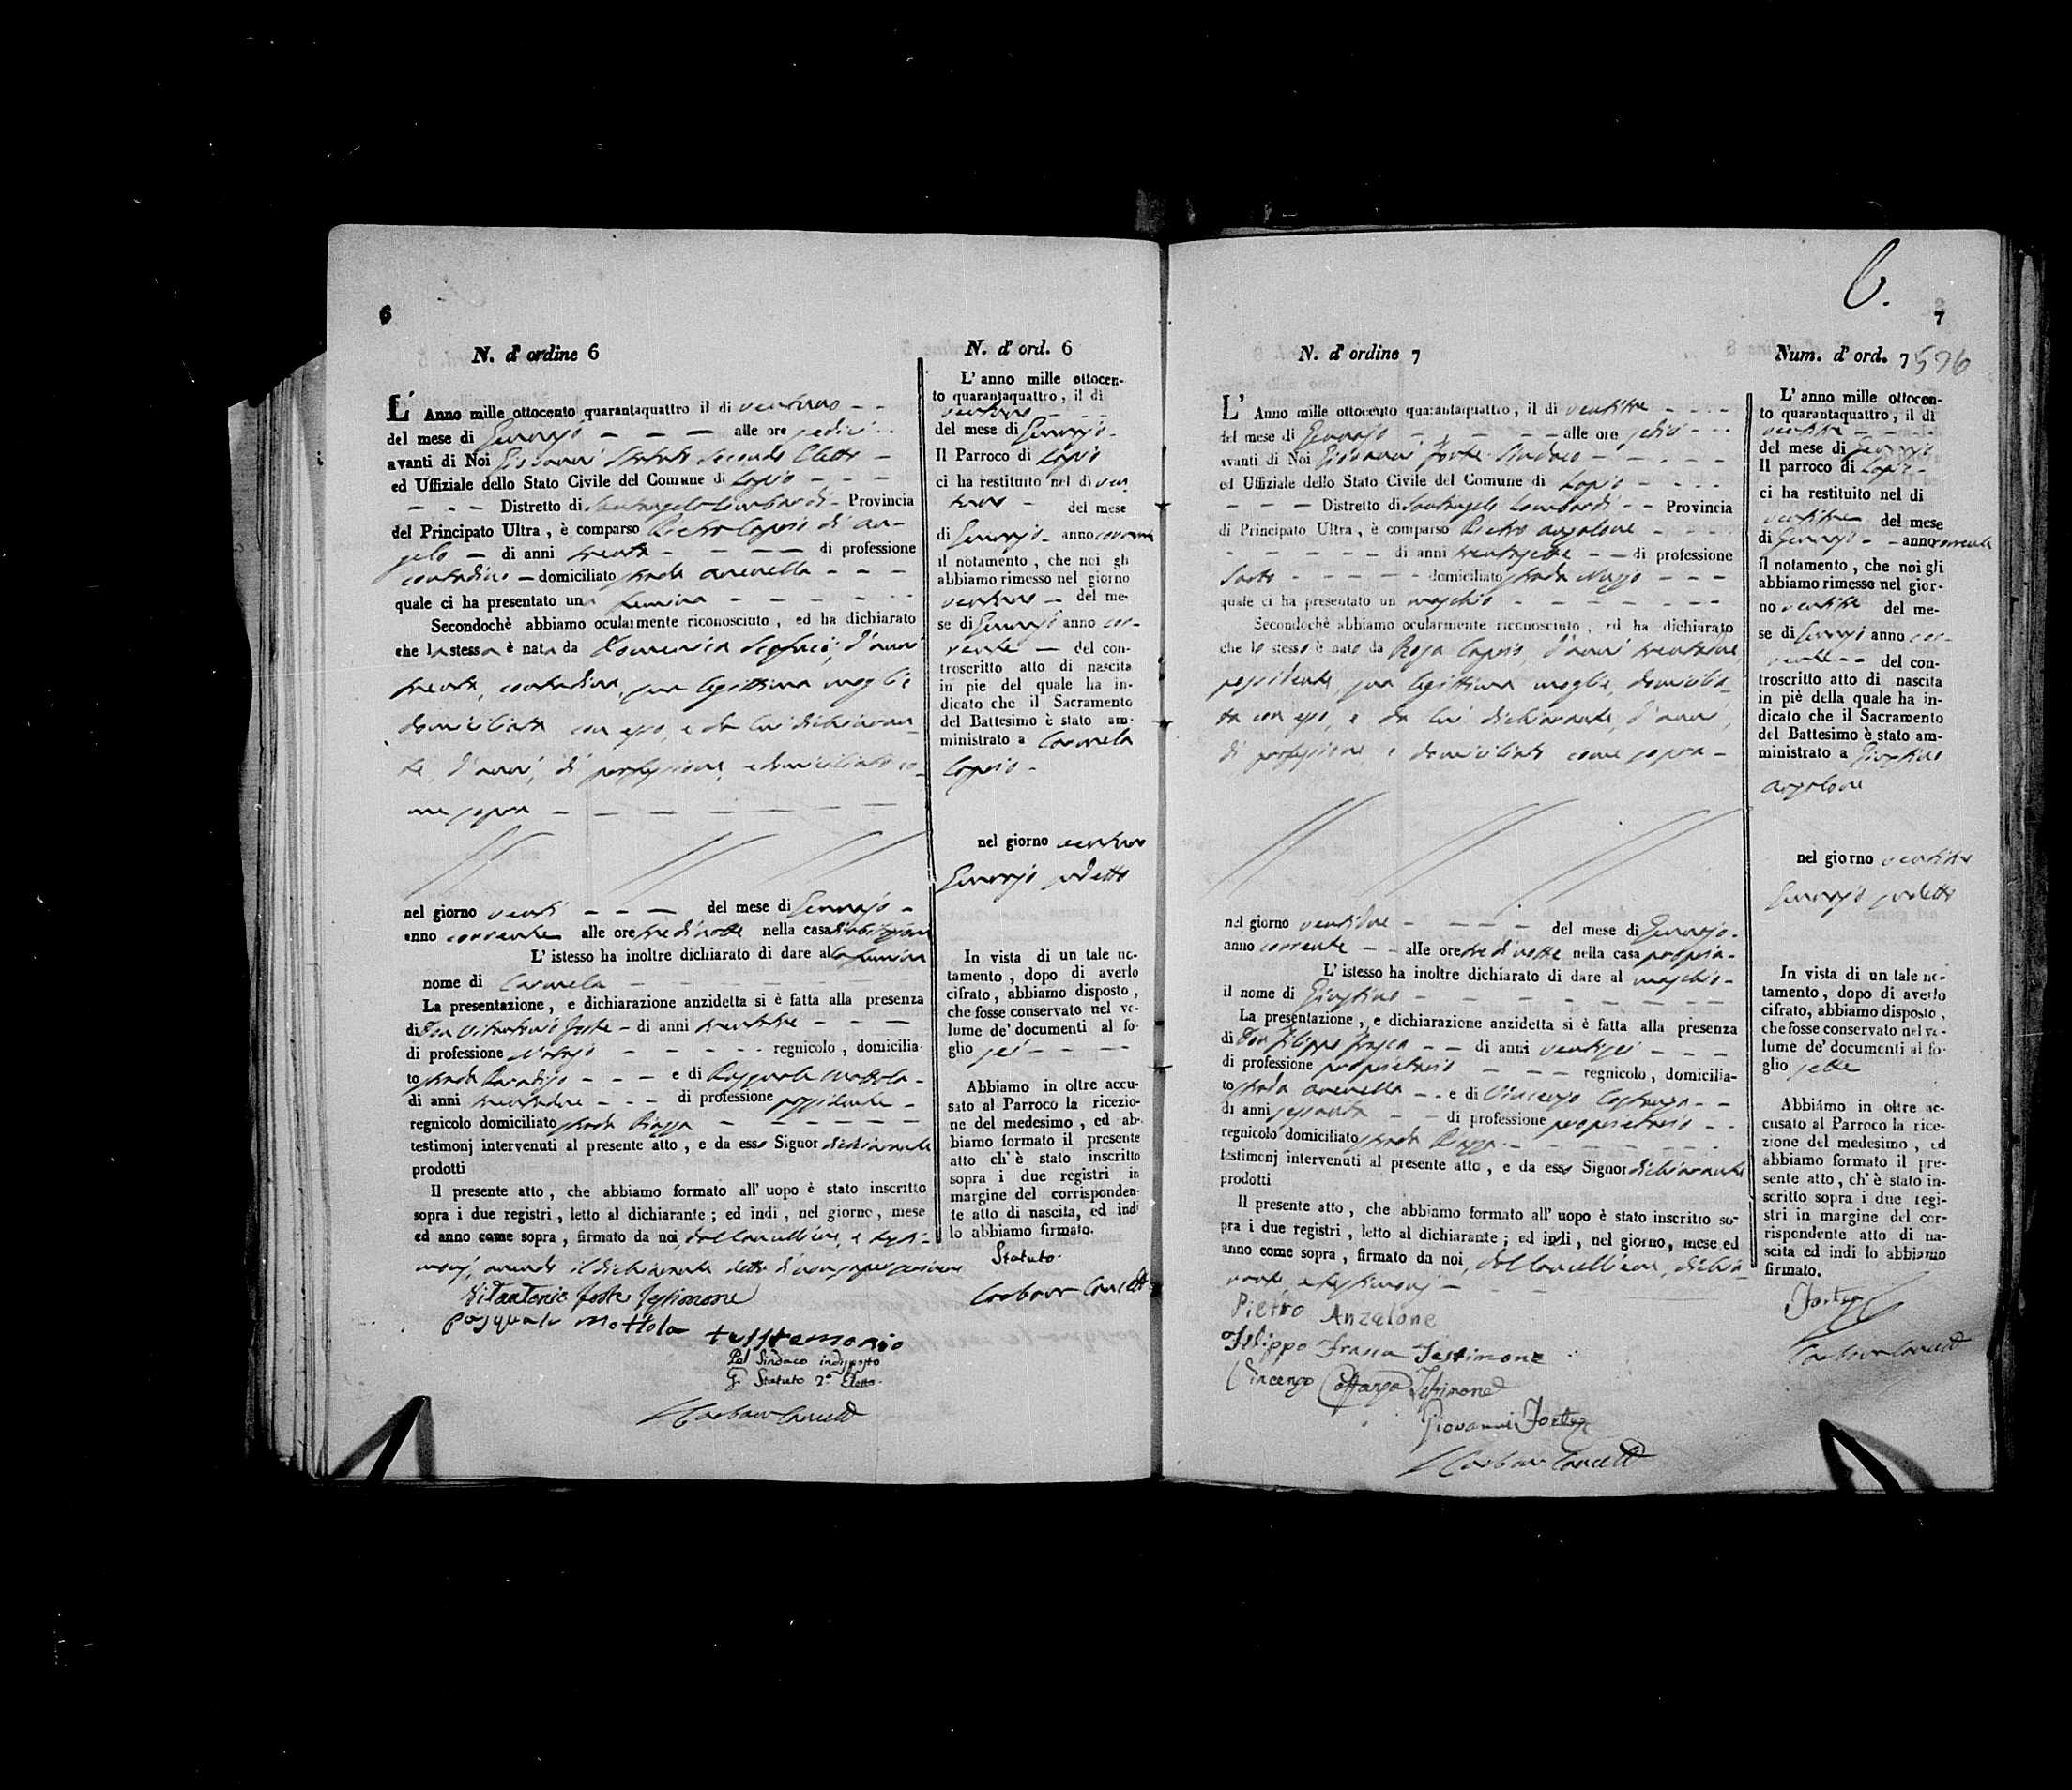 6
N. d'ordine 6
L' Anno mille ottocento quarantaquattro il di ventuno
del mese di Gennajo alle ore sedici
avanti di Noi Giovanni Statuto Secondo Eletto
ed Uffiziale dello Stato Civile del Comune di Lapio
Distretto di Santangelo Lombardi Provincia
del Principato Ultra, è comparso Pietro Caprio di An-
gelo di anni trenta di professione
contadino domiciliato strada Arenella
quale ci ha presentato una femina
Secondochè abbiamo ocularmente riconosciuto, ed ha dichiarato
che la stessa è nata da Domenica d'anni
trenta, contadina, sua legittima moglie
domiciliata con esso, e da lui dichiaran-
te, d'anni, di professione, e domiciliato co-
me sopra
nel giorno venti del mese di Gennajo
anno corrente alle ore tre di notte nella casa d'abitazione
L' istesso ha inoltre dichiarato di dare alla femina
nome di Carmela
La presentazione, e dichiarazione anzidetta si è fatta alla presenza
di Don Vitantonio Forte di anni trentatre
di professione Notajo regnicolo, domicilia-
to strada Paradiso e di Pasquale Mottola
di anni trentadue di professione possidente
regnicolo domiciliato strada Piazza
testimonj intervenuti al presente atto, e da esso Signor dichiarante
prodotti
Il presente atto, che abbiamo formato all' uopo è stato inscritto
sopra i due registri, letto al dichiarante; ed indi, nel giorno, mese
ed anno come sopra, firmato da noi, dal Cancelliere, e testi-
monj, avendo il dichiarante detto di non saper scrivere
Vitantonio Forte Testimone
Pasquale Mottola tusstemonio
Pel Sindaco indisposto
G. Statuto 2º Eletto.
N. d' ord. 6
L' anno mille ottocen-
to quarantaquattro, il di
ventuno
del mese di Gennajo
Il Parroco di Lapio
ci ha restituito nel di ven-
tuno del mese
di Gennajo anno corrente
il notamento, che noi gli
abbiamo rimesso nel giorno
ventuno del me-
se di Gennajo anno cor-
rente del con-
troscritto atto di nascita
in pie del quale ha in-
dicato che il Sacramento
del Battesimo è stato am-
ministrato a Carmela
Caprio
nel giorno ventuno
Gennajo sudetto
In vista di un tale no-
tamento, dopo di averlo
cifrato, abbiamo disposto,
che fosse conservato nel vo-
lume de' documenti al fo-
glio sei
Abbiamo in oltre accu-
sato al Parroco la ricezio-
ne del medesimo, ed ab-
biamo formato il presente
atto ch' è stato inscritto
sopra i due registri in
margine del corrisponden-
te atto di nascita, ed indi
lo abbiamo firmato.
Statuto.
6.
7
N. d' ordine 7
L' Anno mille ottocento quarantaquattro, il di ventitre
del mese di Gennajo alle ore sedici
avanti di Noi Giovanni Forte Sindaco
ed Uffiziale dello Stato Civile del Comune di Lapio
Distretto di Santangelo Lombardi Provincia
di Principato Ultra, è comparso Pietro Anzolone
di anni trentasette di professione
Sarto domiciliato strada
quale ci ha presentato un maschio
Secondochè abbiamo ocularmente riconosciuto, ed ha dichiarato
che lo stesso è nato da Rosa Caprio, d'anni
possidente, sua legittima moglie, domicilia-
ta con esso, e da lui dichiarante, d'anni,
di professione, e domiciliato come sopra
nel giorno ventidue del mese di Gennajo
anno corrente alle ore tre di notte nella casa propria
L' istesso ha inoltre dichiarato di dare al maschio
il nome di Giustino
La presentazione, e dichiarazione anzidetta si è fatta alla presenza
di Don Filippo Frasca di anni ventisei
di professione proprietario regnicolo, domicilia-
to strada Arenella e di Vincenzo Costanza
di anni sessanta di professione proprietario
regnicolo domiciliato strada Piazza
testimonj intervenuti al presente atto, e da esso Signor dichiarante
prodotti
Il presente atto, che abbiamo formato all' uopo è stato inscritto so-
pra i due registri, letto al dichiarante; ed indi, nel giorno, mese ed
anno come sopra, firmato da noi, dal Cancelliere, dichia-
rante, e testimonj
Pietro Anzelone
Felippo Frasca Testimone
Vincenzo Costanza Testimone
Giovanni Forte
Num. d' ord. 7 576
L' anno mille ottocen-
to quarantaquattro, il di
ventitre
del mese di Gennajo
Il parroco di Lapio
ci ha restituito nel di
ventitre del mese
di Gennajo anno corrente
il notamento, che noi gli
abbiamo rimesso nel gior-
no ventitre del me-
se di Gennajo anno cor-
rente del con-
troscritto atto di nascita
in piè della quale ha in-
dicato che il Sacramento
del Battesimo è stato am-
ministrato a Giustino
Anzolone
nel giorno ventitre
Gennajo sudetto
In vista di un tale no-
tamento, dopo di averlo
cifrato, abbiamo disposto,
che fosse conservato nel vo-
lume de' documenti al fo-
glio sette
Abbiamo in oltre ac-
cusato al Parroco la rice-
zione del medesimo, ed
abbiamo formato il pre-
sente atto, ch' è stato in-
scritto sopra i due regi-
stri in margine del cor-
rispondente atto di na-
scita ed indi lo abbiamo
firmato.
Forte